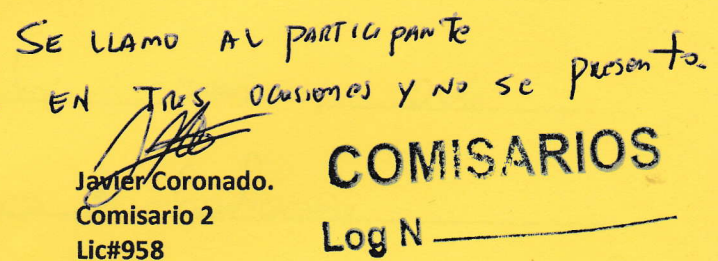 SE LLAMO AL PARTICIPANTE
EN TRES OCASIONES Y NO SE PRESENTO.
Javier Coronado.
Comisario 2
Lic#958
COMISARIOS
Log N